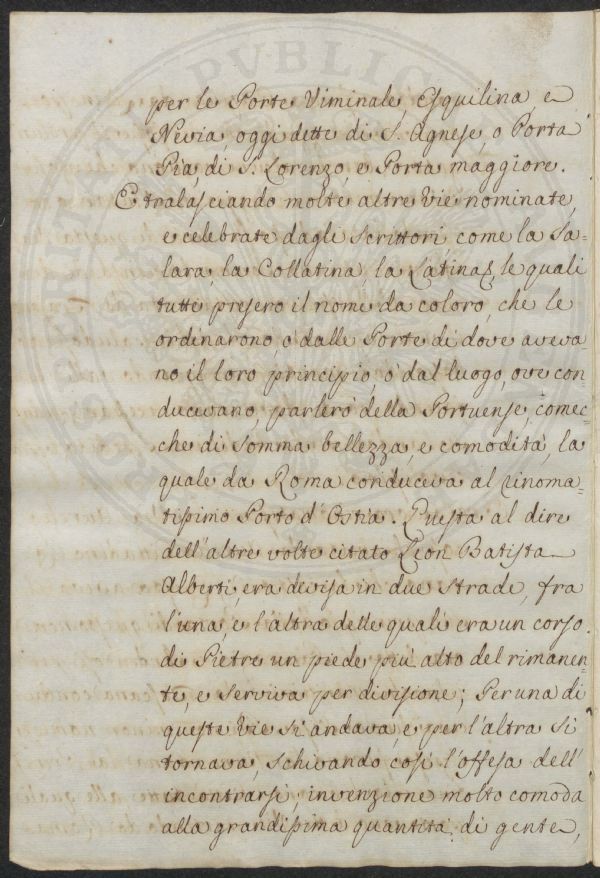 per le Porte Viminale, Esquilina e
Nevia, oggi dette di S. Agnese, o Porta
Pia, di S. Lorenzo, e Porta maggiore.
E tralasciando molte altre vie nominate,
e celebrate dagli Scrittori, come la Sa=
lara, la Collatina, la Latina &, le quali
tutte presero il nome da coloro, che le
ordinarono, o dalle Porte di dove aveva=
no il loro principio, o dal luogo, ove con
ducevano, parlerò della Portuense, comec=
che di somma bellezza, e comodità, la
quale da Roma conduceva al rinoma=
tissimo Porto d'Ostia. Questa al dire
dell'altre volte citato Leon Batista
Alberti, era devisa in due strade, fra
l'una, e l'altra delle quali era un corso
di Pietre un piede più alto del rimanen=
te, e serviva per divisione; Per una di
queste vie si andava, e per l'altra si
tornava, schivando così l'offesa dell'
incontrarsi; invenzione molto comoda
alla grandissima quantità di gente,
PUBLIC